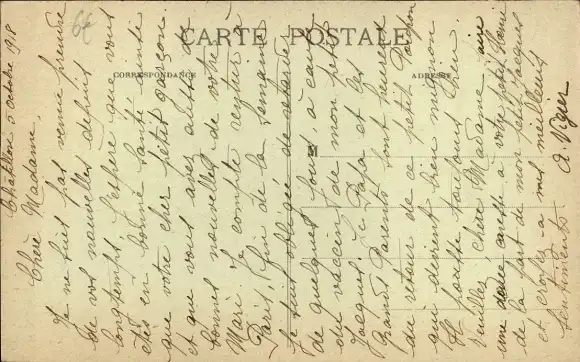 6f
CARTE POSTALE
CORRESPONDANCE
ADRESSE
Châtillon 5 octobre 1918
Chère Madame,
Je ne suis pas venue prendre
de vos nouvelles depuis
longtemps, j'espère que vous
êtes en bonne santé, ainsi
que votre cher petit garçon.
et que vous avez aussi de
bonnes nouvelles de votre
Mari. Je compte rentrer à
Paris, fin de la semaine
Je suis obligée de retarder
de quelques jours, à cause
du vaccin de mon petit
Jacques; Papa et les
Grands Parents sont heureux
du retour de ce petit
qui devient bien mignon
et pousse toujours bien.
Veuillez chère Madame faire
une douce caresse à votre petit
de la part de mon petit Jacques
et croyez à mes meilleurs
sentiments
A. Vigier